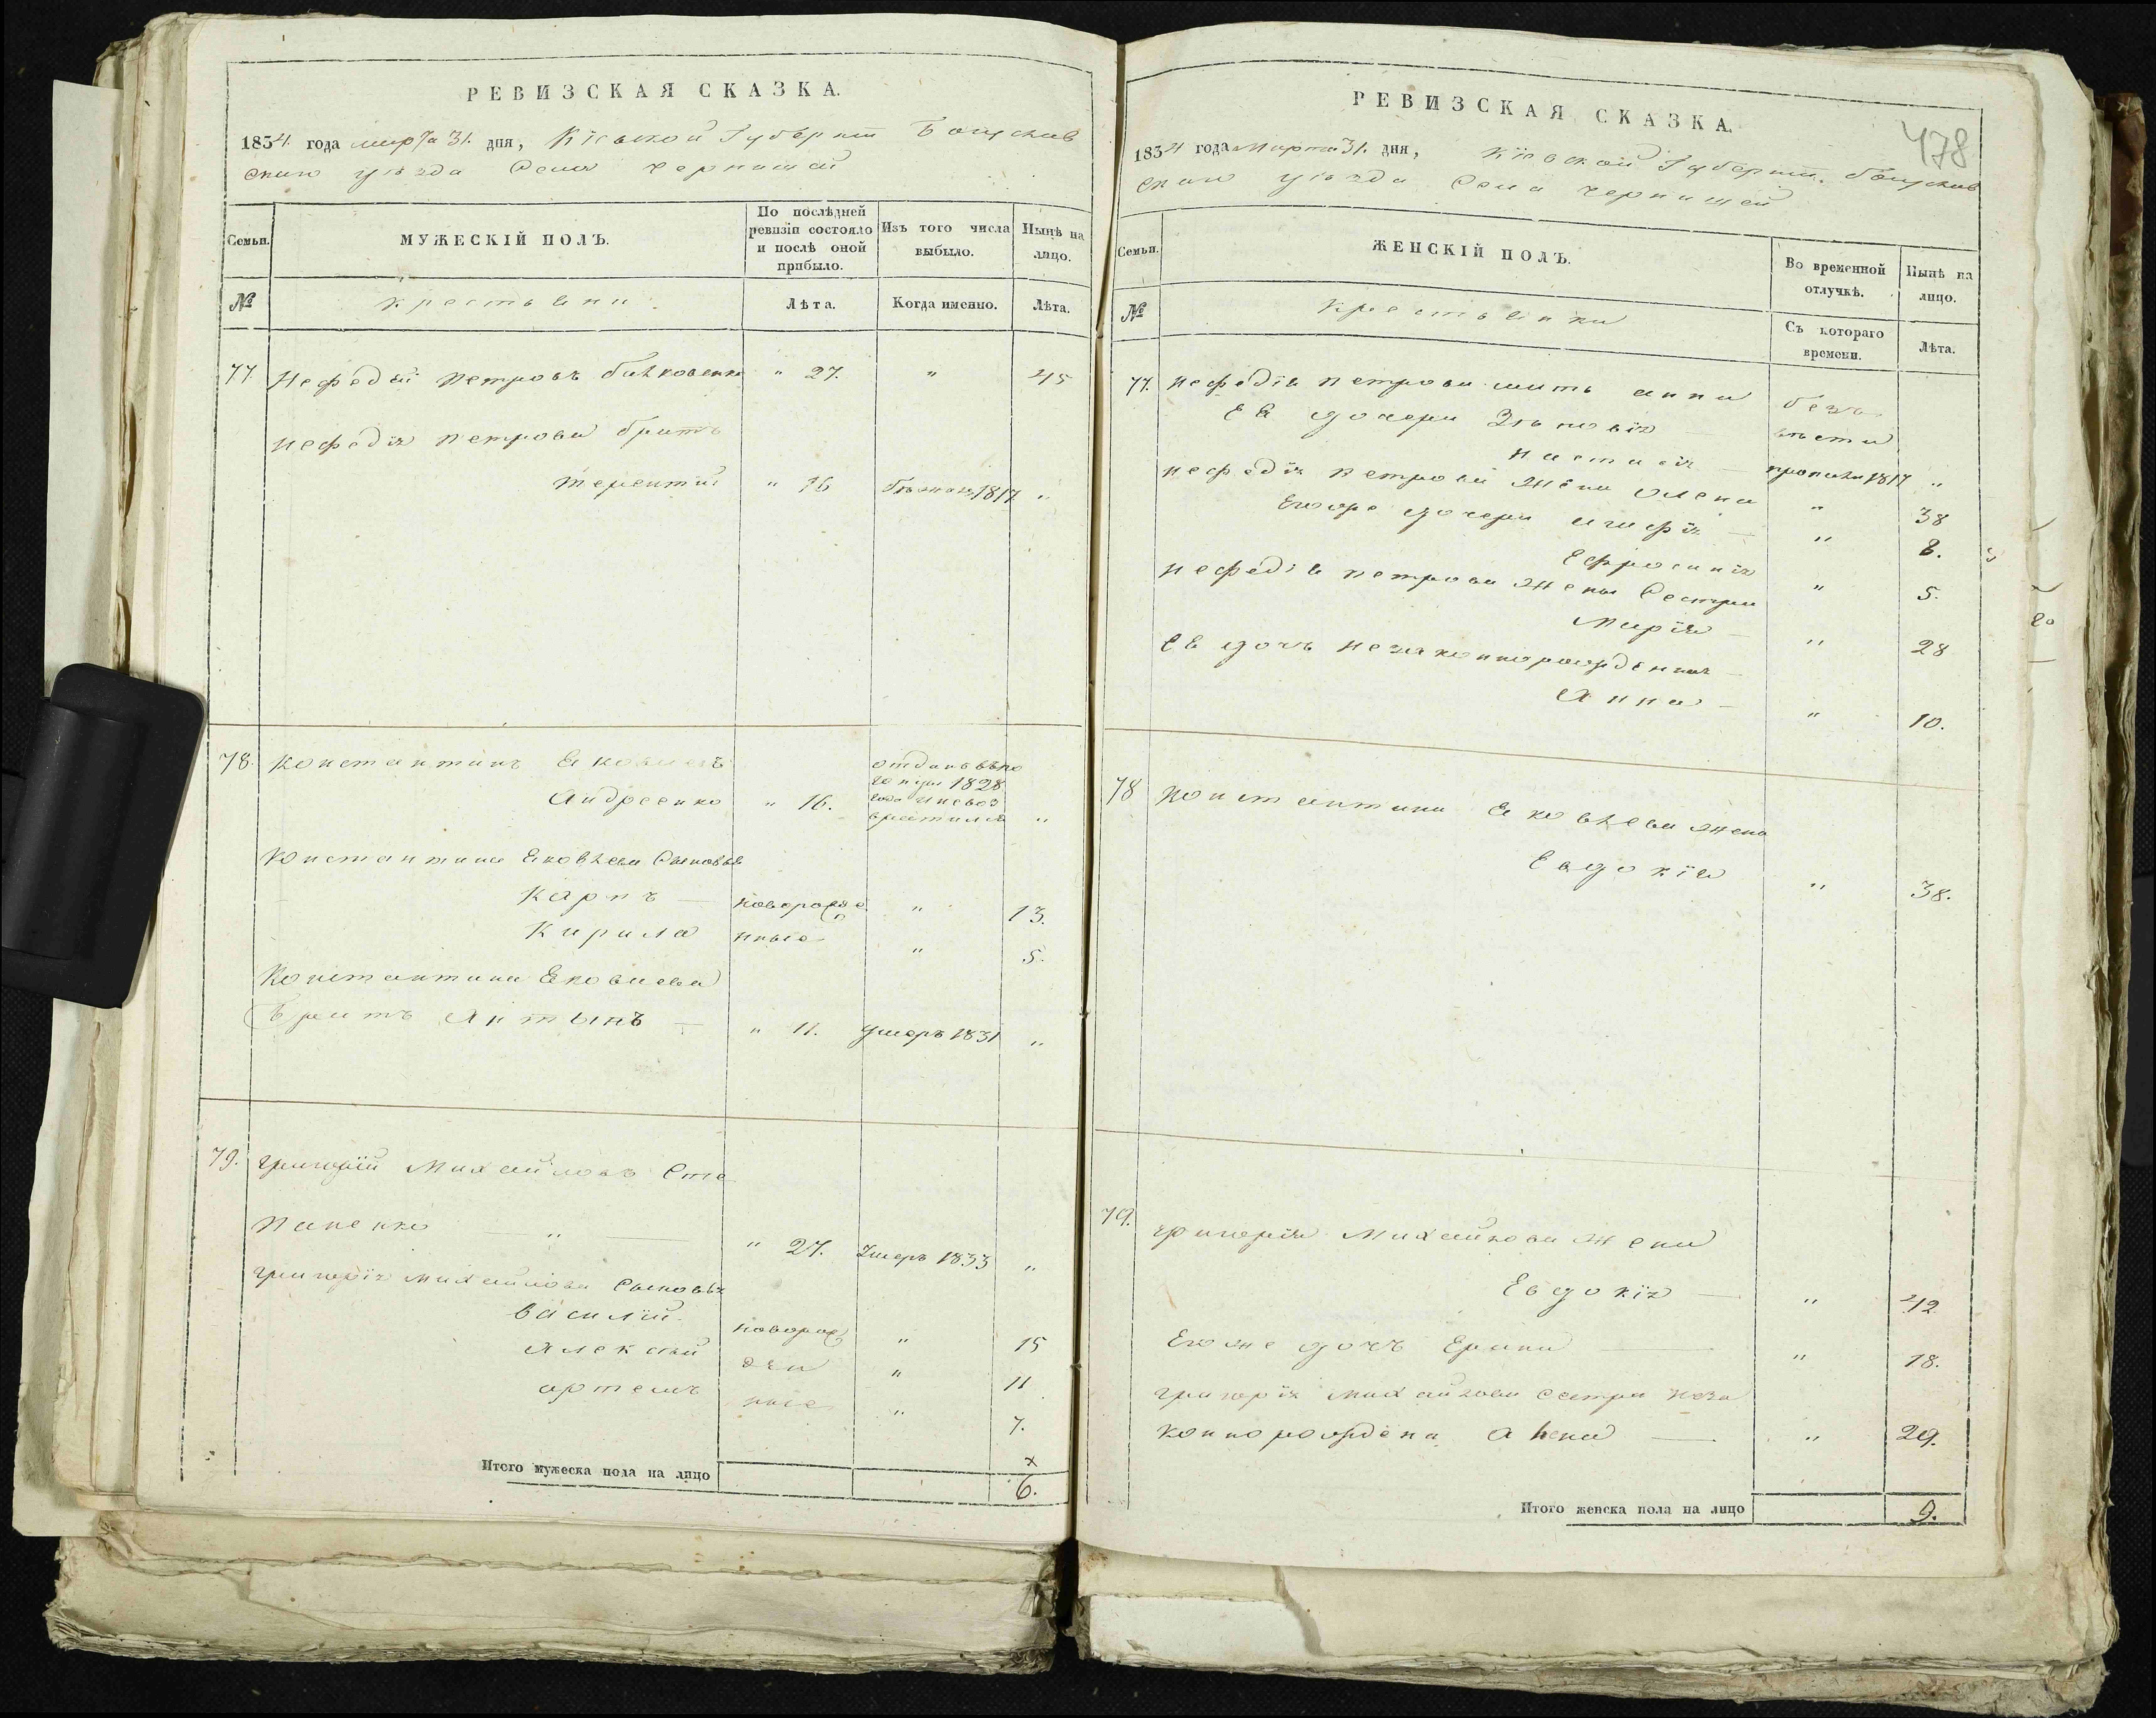 РЕВИЗСКАЯ СКАЗКА.
1834 года марта 31. дня, Кіевской Губерніи Богуслав
скаго уѣзда Села Чернишей
Семьи.
МУЖЕСКІЙ ПОЛЪ.
По послѣдней ревизіи состояло и послѣ оной прибыло.
Изъ того числа выбыло.
Нынѣ на лицо.
№
крестьяни
Лѣта.
Когда именно.
Лѣта.
77 Нефедій Петровъ " 27. " 45
Нефедія Петрова братъ
Терентій " 16 бѣжалъ 1817 "
78. Константинъ Яковлевъ
Андреенко " 16. отданъ
1828
года "
Константина Яковлева Сыновья
Карпъ — новорожде " 13.
Кирила нные " 5.
Константина Яковлева
Братъ Антынъ — " 11. умеръ 1831 "
79. Григорій Михайловъ Сте
паненко " " 27. Умеръ 1833 "
Григорія Михайлова Сыновья
Василій новорож " 15
Алексѣй ден " 11
Артемъ ные " 7.
х
Итого мужеска пола на лицо 6.
РЕВИЗСКАЯ СКАЗКА.
478
1834 года Марта 31. дня, Кіевской Губерніи Богуслав
скаго уѣзда Села Чернишей
Семьи.
ЖЕНСКІЙ ПОЛЪ.
Во временной отлучкѣ.
Нынѣ на лицо.
№
Крестьянки
Съ котораго времени.
Лѣта.
77. Нефедія Петрова мать Анна безъ
Ея дочери Зѣновія — вѣсти
Настасія — пропали 1817 "
Нефедія Петрова жена Олена " 38
Егоже дочери Агафія — " 8.
Ефросинія " 5.
Нефедія Петрова жены Сестра
Марія — " 28
Ея дочь незаконнорожденная —
Анна — " 10.
78 Константина Яковлева жена
Евдокія " 38.
79. Григорія Михайлова жена
Евдокія — " 42
Егоже дочь Ерина — " 18.
Григорія Михайлова сестра неза
коннорождена — " 29.
Итого женска пола на лицо 9.